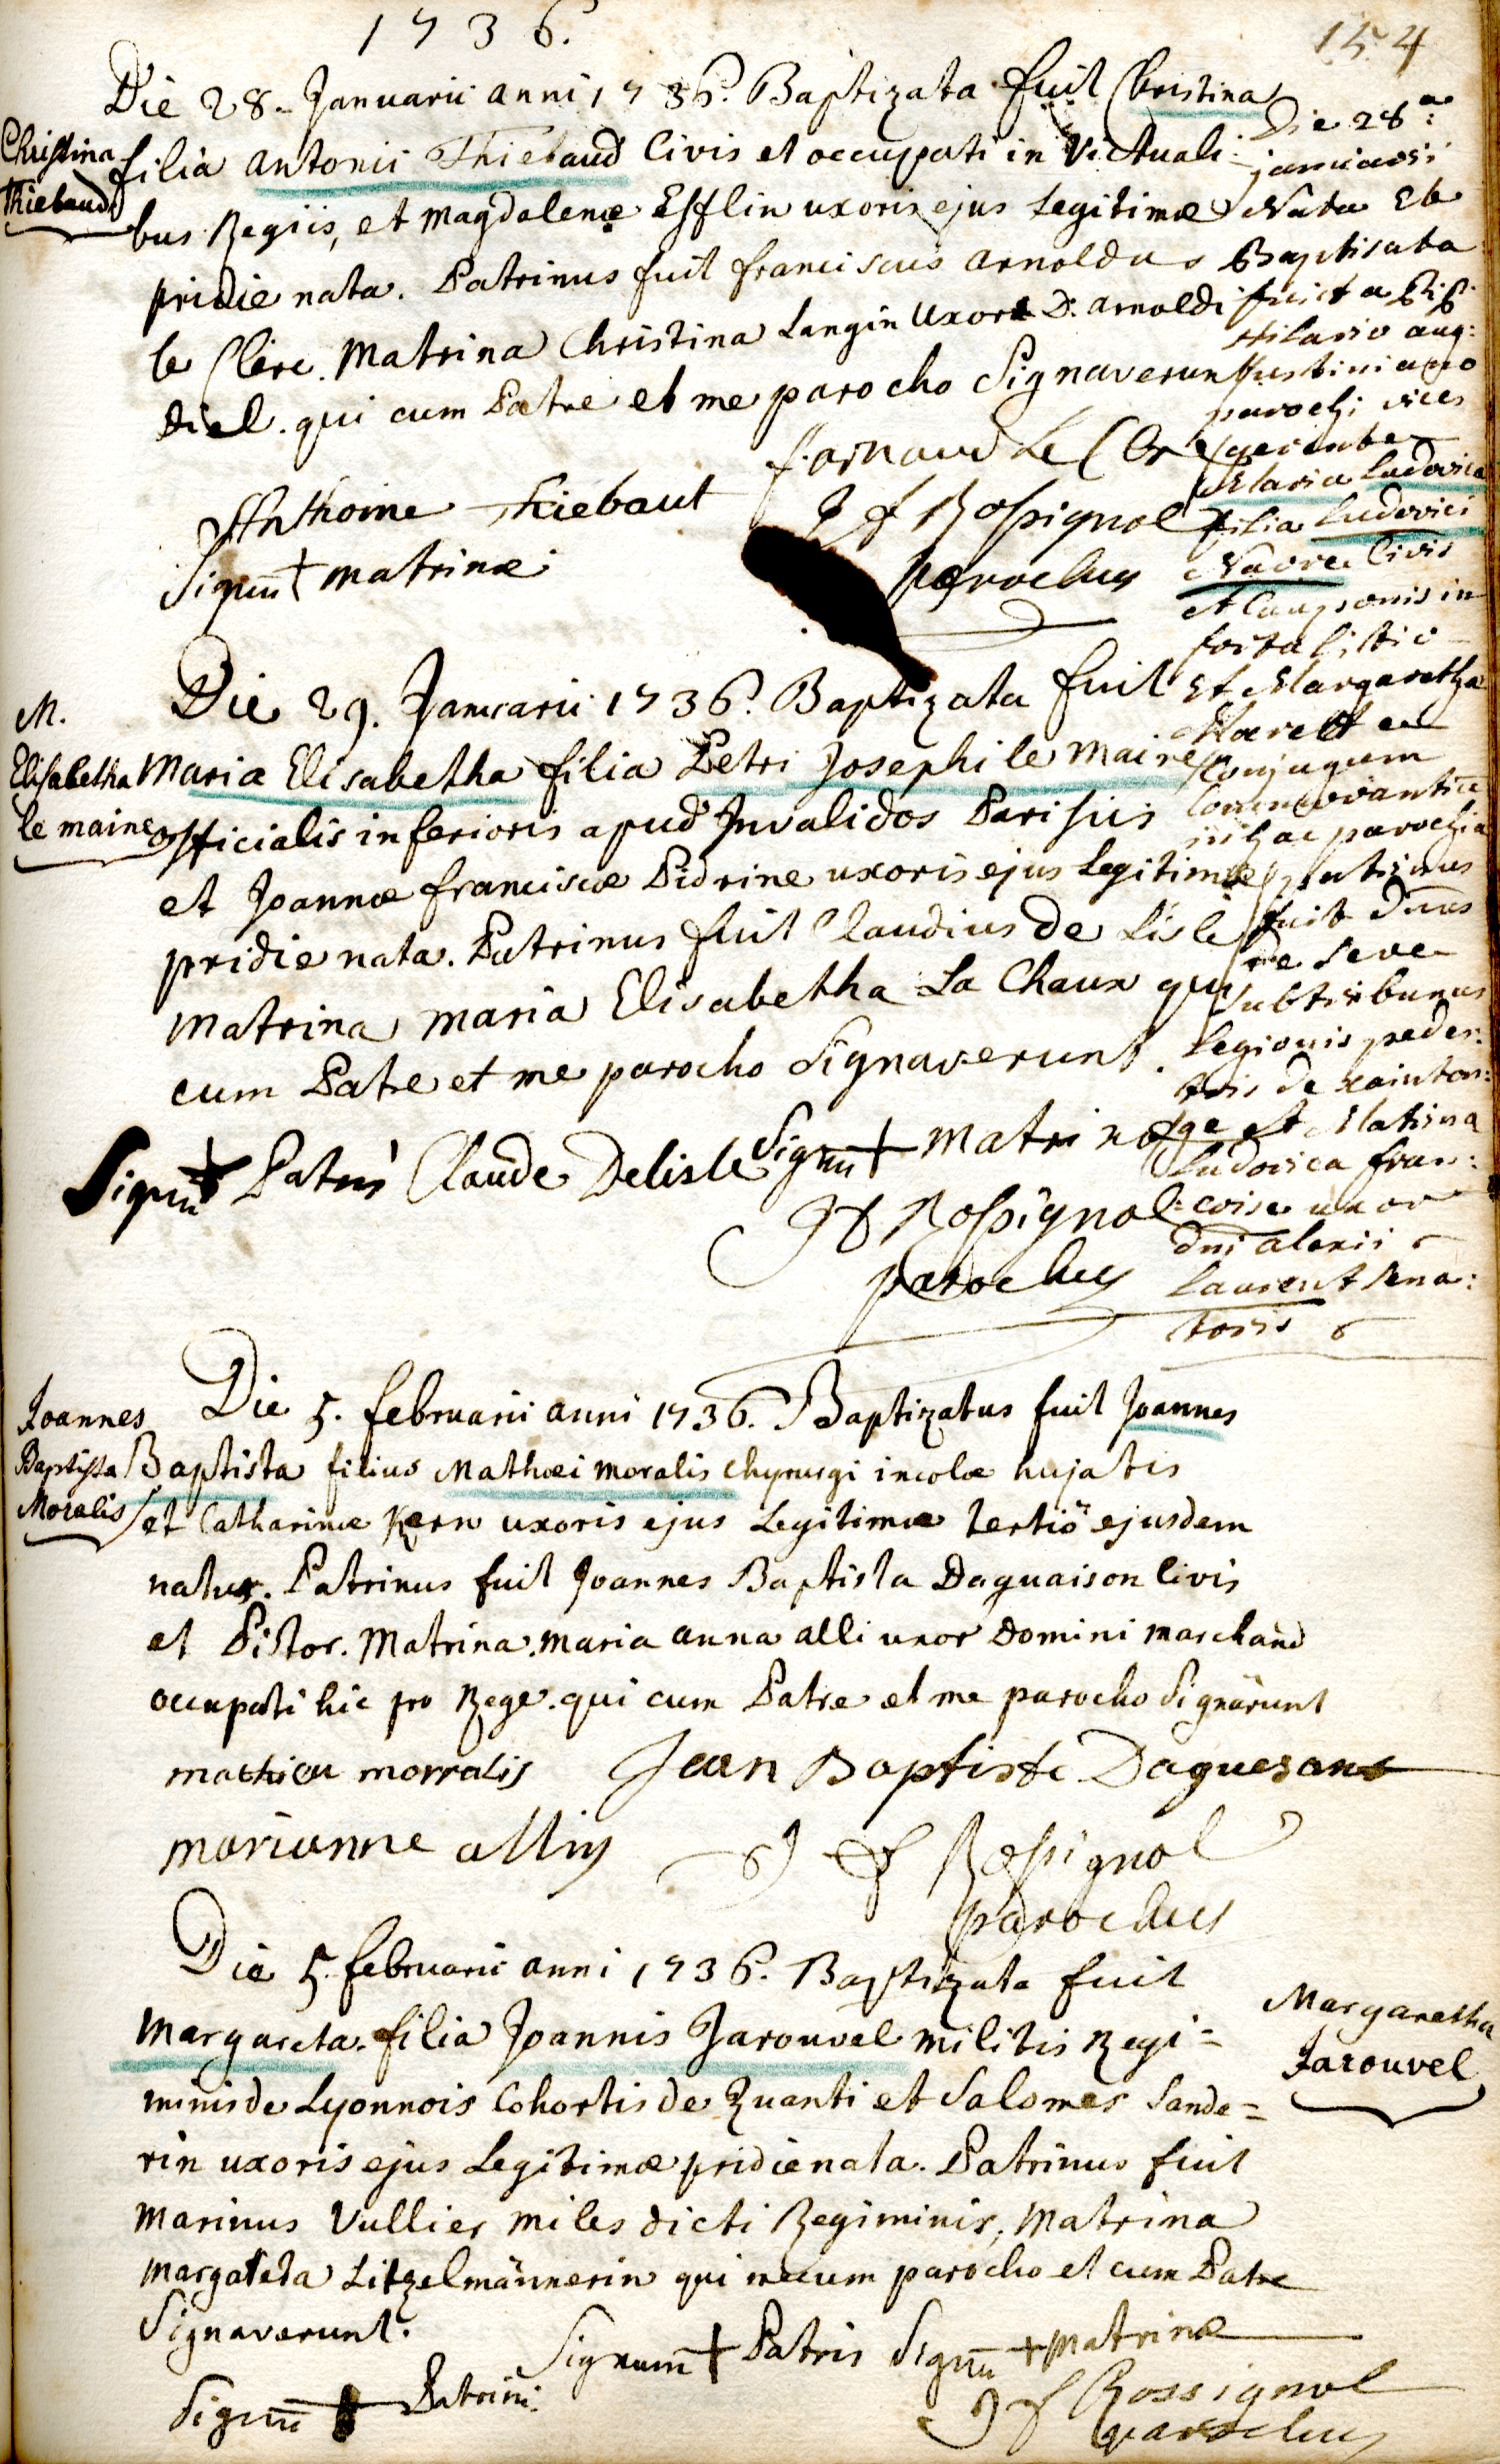 1736.
154
Die 28. Januarii anni 1736. Baptizata fuit Christina
filia antonii Thiebaud Civis et occupati in Victuali
bus Regiis, et Magdalenæ Esflin uxoris ejus Legitimæ
pridie nata. Patrinus fuit franciscus arnoldus
le Clerc. Matrina Christina Langin Uxor D. arnoldi
Diel. qui cum Patre et me parocho Signaverunt
Christina
Thiebaud
f. arnaud Le Cler
Anthoine Thiebaut
J f Rossignol
parochus
Signu + matrinæ
Die 28a:
januarii
Nata Et
Baptisata
fuit a P. P.
Hilario aug:
ustiniano
parochi vices
gerente
Maria Ludovica
filia Ludovici
Navre Civis
et Caupsonis in
fortalitio
Et Margaretha
conjugum
Commorantiu
in hac parochia
patrinus
fuit Dnus
de Seve
subtribunus
Legionis pedes:
tris de xainton:
ge et Matrina
Ludovica fran:
coise uxor
dni alexii
Laurent Sena:
toris
M.
Elisabetha
le maire
Die 29. Januarii 1736. Baptizata fuit
Maria Elisabetha filia Petri Josephi le Maire
officialis inferioris apud Invalidos Parisiis
et Joannæ franciscæ Pidrine uxoris ejus Legitimæ
pridie nata. Patrinus fuit Claudius De Lisle
Matrina maria Elisabetha La Chaux qui
cum Patre et me parocho Signaverunt.
Signu + Patris Claude Delisle Signu + Matrinæ
J f Rossignol
parochus
Joannes
Baptista
Moralis
Die 5. februarii anni 1736. Baptizatus fuit Joannes
Baptista filius Mathæi Moralis chyrurgi incolæ hujatis
et Catharinæ Kern uxoris ejus Legitimæ tertiö ejusdem
natus. Patrinus fuit Joannes Baptista Daguaison Civis
et Pistor. Matrina maria anna alli uxor Domini marchand
occupati hic pro Rege. qui cum Patre et me parocho Signârunt
mathieu morralis Jean Baptiste Daguesans
morianne alliy J f Rossignol
parochus
Die 5. februarii anni 1736. Baptizata fuit
Margareta filia Joannis Jarouvel militis Regi=
minis de Lyonnois Cohortis de Quanti et Salomes Sande=
rin uxoris ejus Legitimæ pridie nata. Patrinus fuit
Marinus Vullier miles dicti Regiminis, Matrina
Margareta Litzelmännerin qui mecum parocho et cum Patre
Signaverunt.
Margaretha
Jarouvel
Signum + Patris Signu + Matrinæ
Signu + Patrini
J f Rossignol
parochus